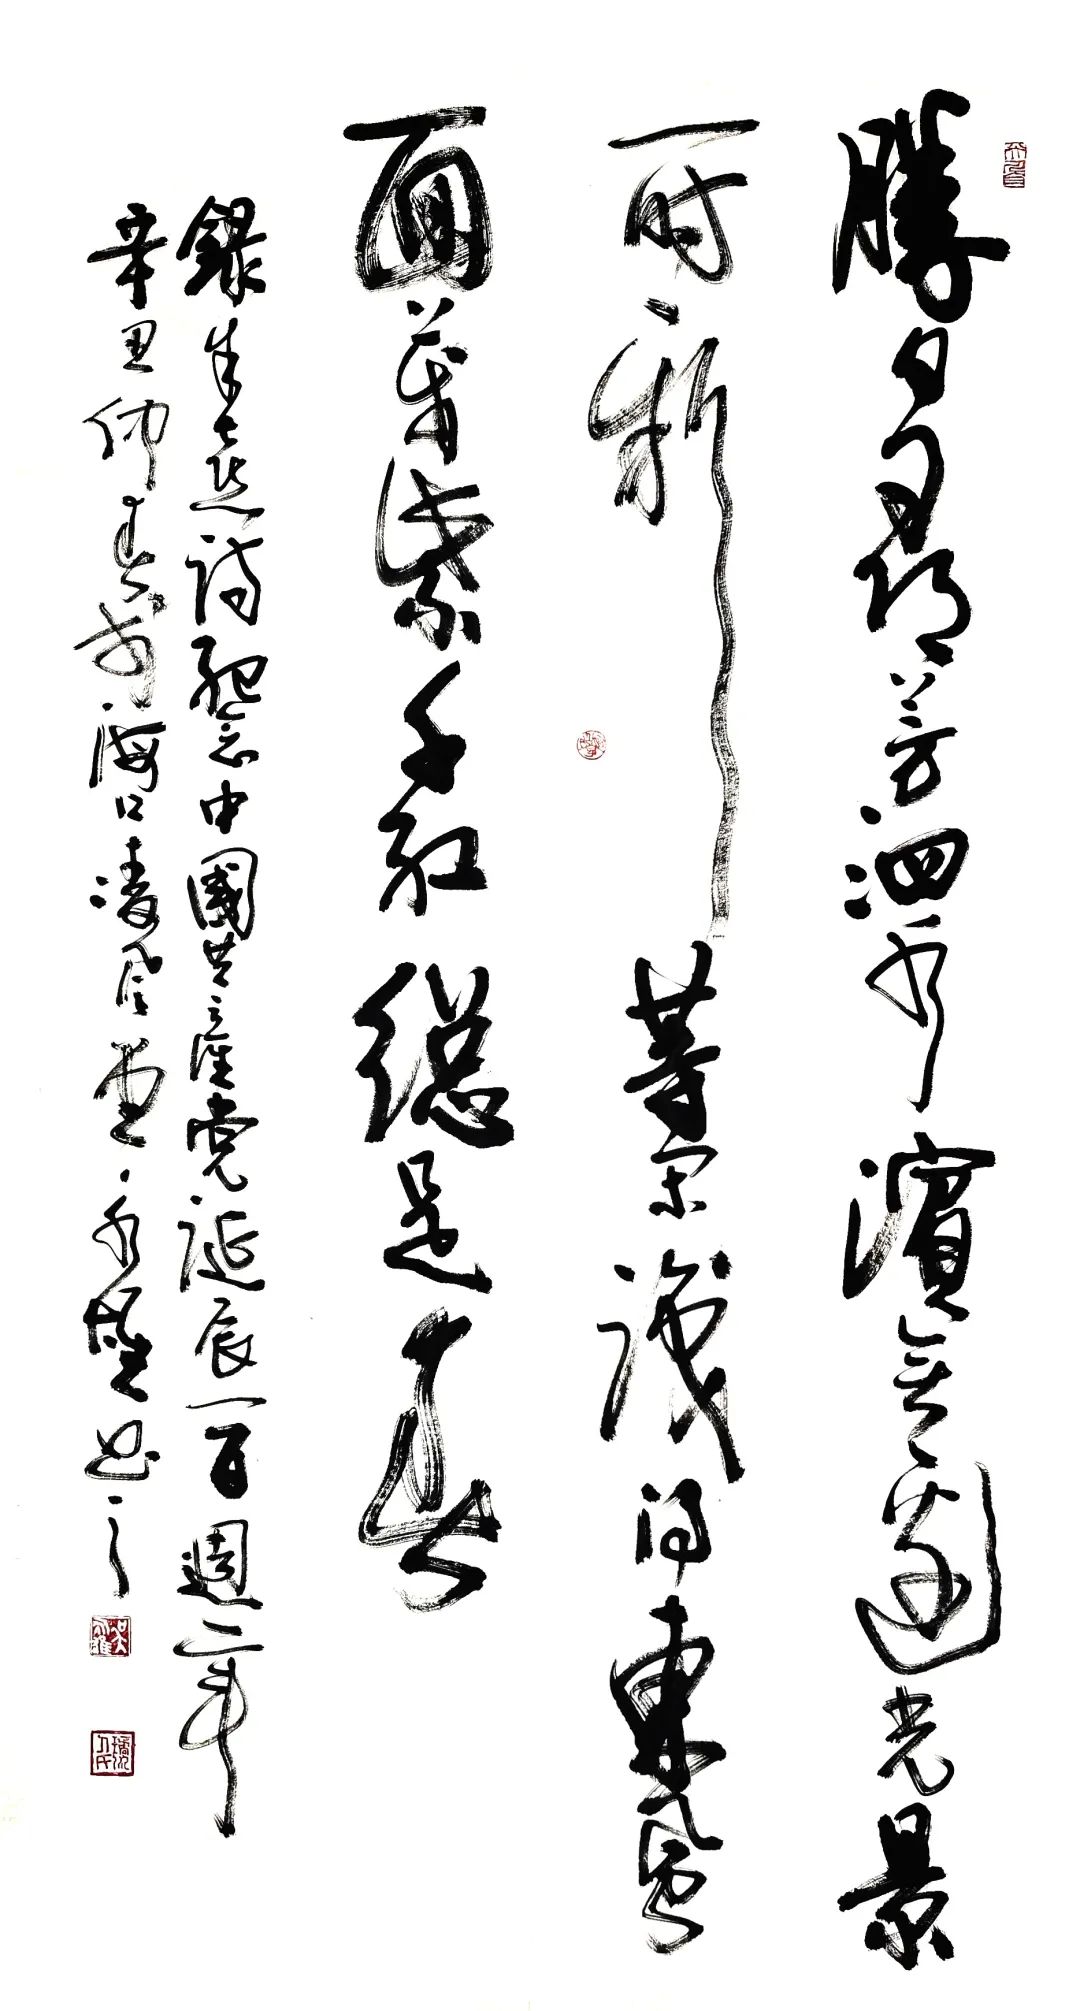 勝日尋芳泗水濱無邊光景
一時新等閑識得東風
面萬紫千紅總是春
錄朱熹詩紀念中國共產黨誕辰一百週年
辛丑仲春於海口凌風堂永雄書